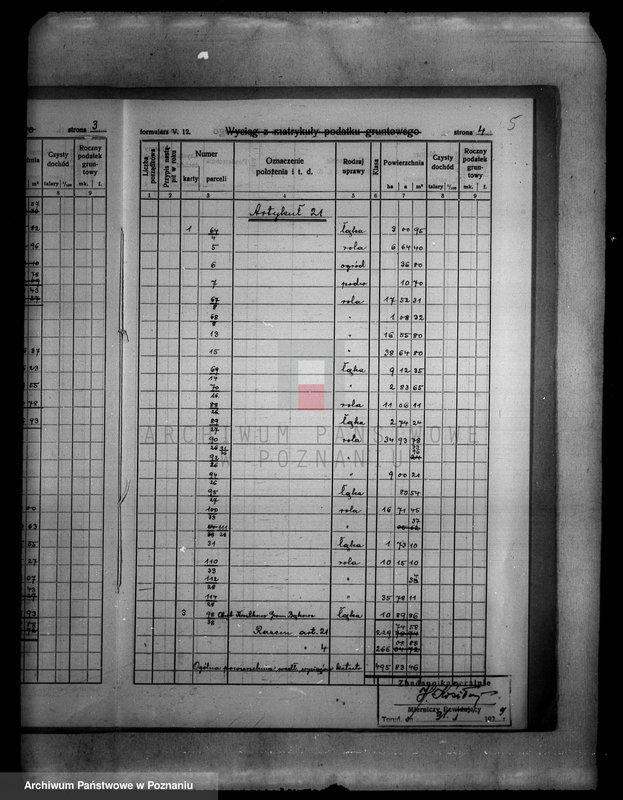 strona 3
formularz V. 12.
Wyciąg z matrykuły podatku gruntowego
strona 4
5
Czysty dochód
Roczny podatek gruntowy
talary
mk. f.
8 9
Liczba porządkowa
Przypis nastąpił w roku
Numer
karty parceli
Oznaczenie położenia i t. d.
Rodzaj uprawy
Klasa
Powierzchnia
ha a m²
Czysty dochód
talary 1/100
Roczny podatek gruntowy
mk. f.
1 2 3 4 5 6 7 8 9
Artykuł 21
1 64/4 łąka 3 00 95
5 rola 6 64 40
6 ogród 36 80
7 podw. 10 70
67/8 rola 17 52 31
68/8 " 1 08 32
13 " 16 55 80
15 " 38 64 80
69/14 łąka 9 12 35
70/16 " 2 83 65
88/26 rola 11 06 11
89/27 łąka 2 74 24
90/26 rola 34 93 78
92/26 "
94/26 " 9 00 21
95/27 łąka 80 54
100/33 rola 16 71 45
111/28 " 37
31 łąka 1 73 10
110/33 rola 10 15 10
112/28 "
114/28 " 35 78 11
3 98/38 łąka 10 89 86
Razem art. 21 229 74 58
" " 4 266 08 88
Ogólna powierzchnia wedł. wyciągu 495 83 46
Zbadano kameralnie
Mierniczy Rewidujący
Toruń, 31.
ARCHIWUM PAŃSTWOWE
W POZNANIU
Archiwum Państwowe w Poznaniu